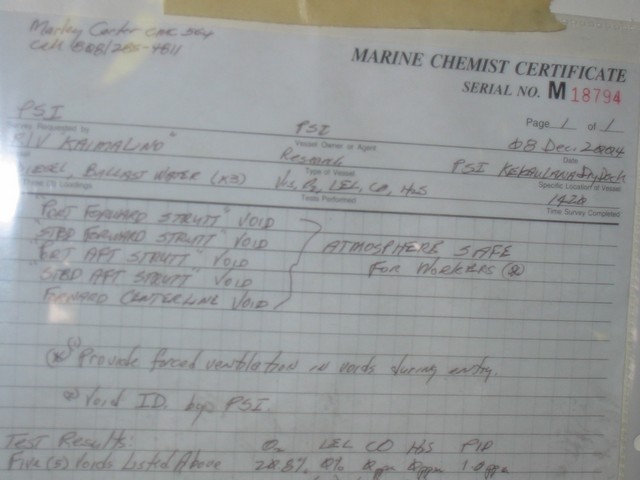 Marley Carter CMC 564
Cell (808) 285-4811
MARINE CHEMIST CERTIFICATE
SERIAL NO. M 18794
Page 1 of 1
PSI PSI 08 Dec. 2004
Requested by Vessel Owner or Agent Date
R/V KAIMALINO" Research PSI Drydock
Type of Vessel Specific Location of Vessel
DIESEL, BALLAST WATER (X3) Vis, O2, LEL, CO, H2S 1420
Loadings Tests Performed Time Survey Completed
"PORT FORWARD STRUTT" VOID
"STBD FORWARD STRUTT" VOID
"PORT AFT STRUTT" VOID
"STBD AFT STRUTT" VOID
FORWARD CENTERLINE VOID
ATMOSPHERE SAFE
FOR WORKERS
Provide forced ventilation in voids during entry.
Void ID. by PSI.
Test Results: O2 LEL CO H2S PID
Five (5) Voids Listed Above 20.8% 0% 0ppm 0ppm 1.0ppm